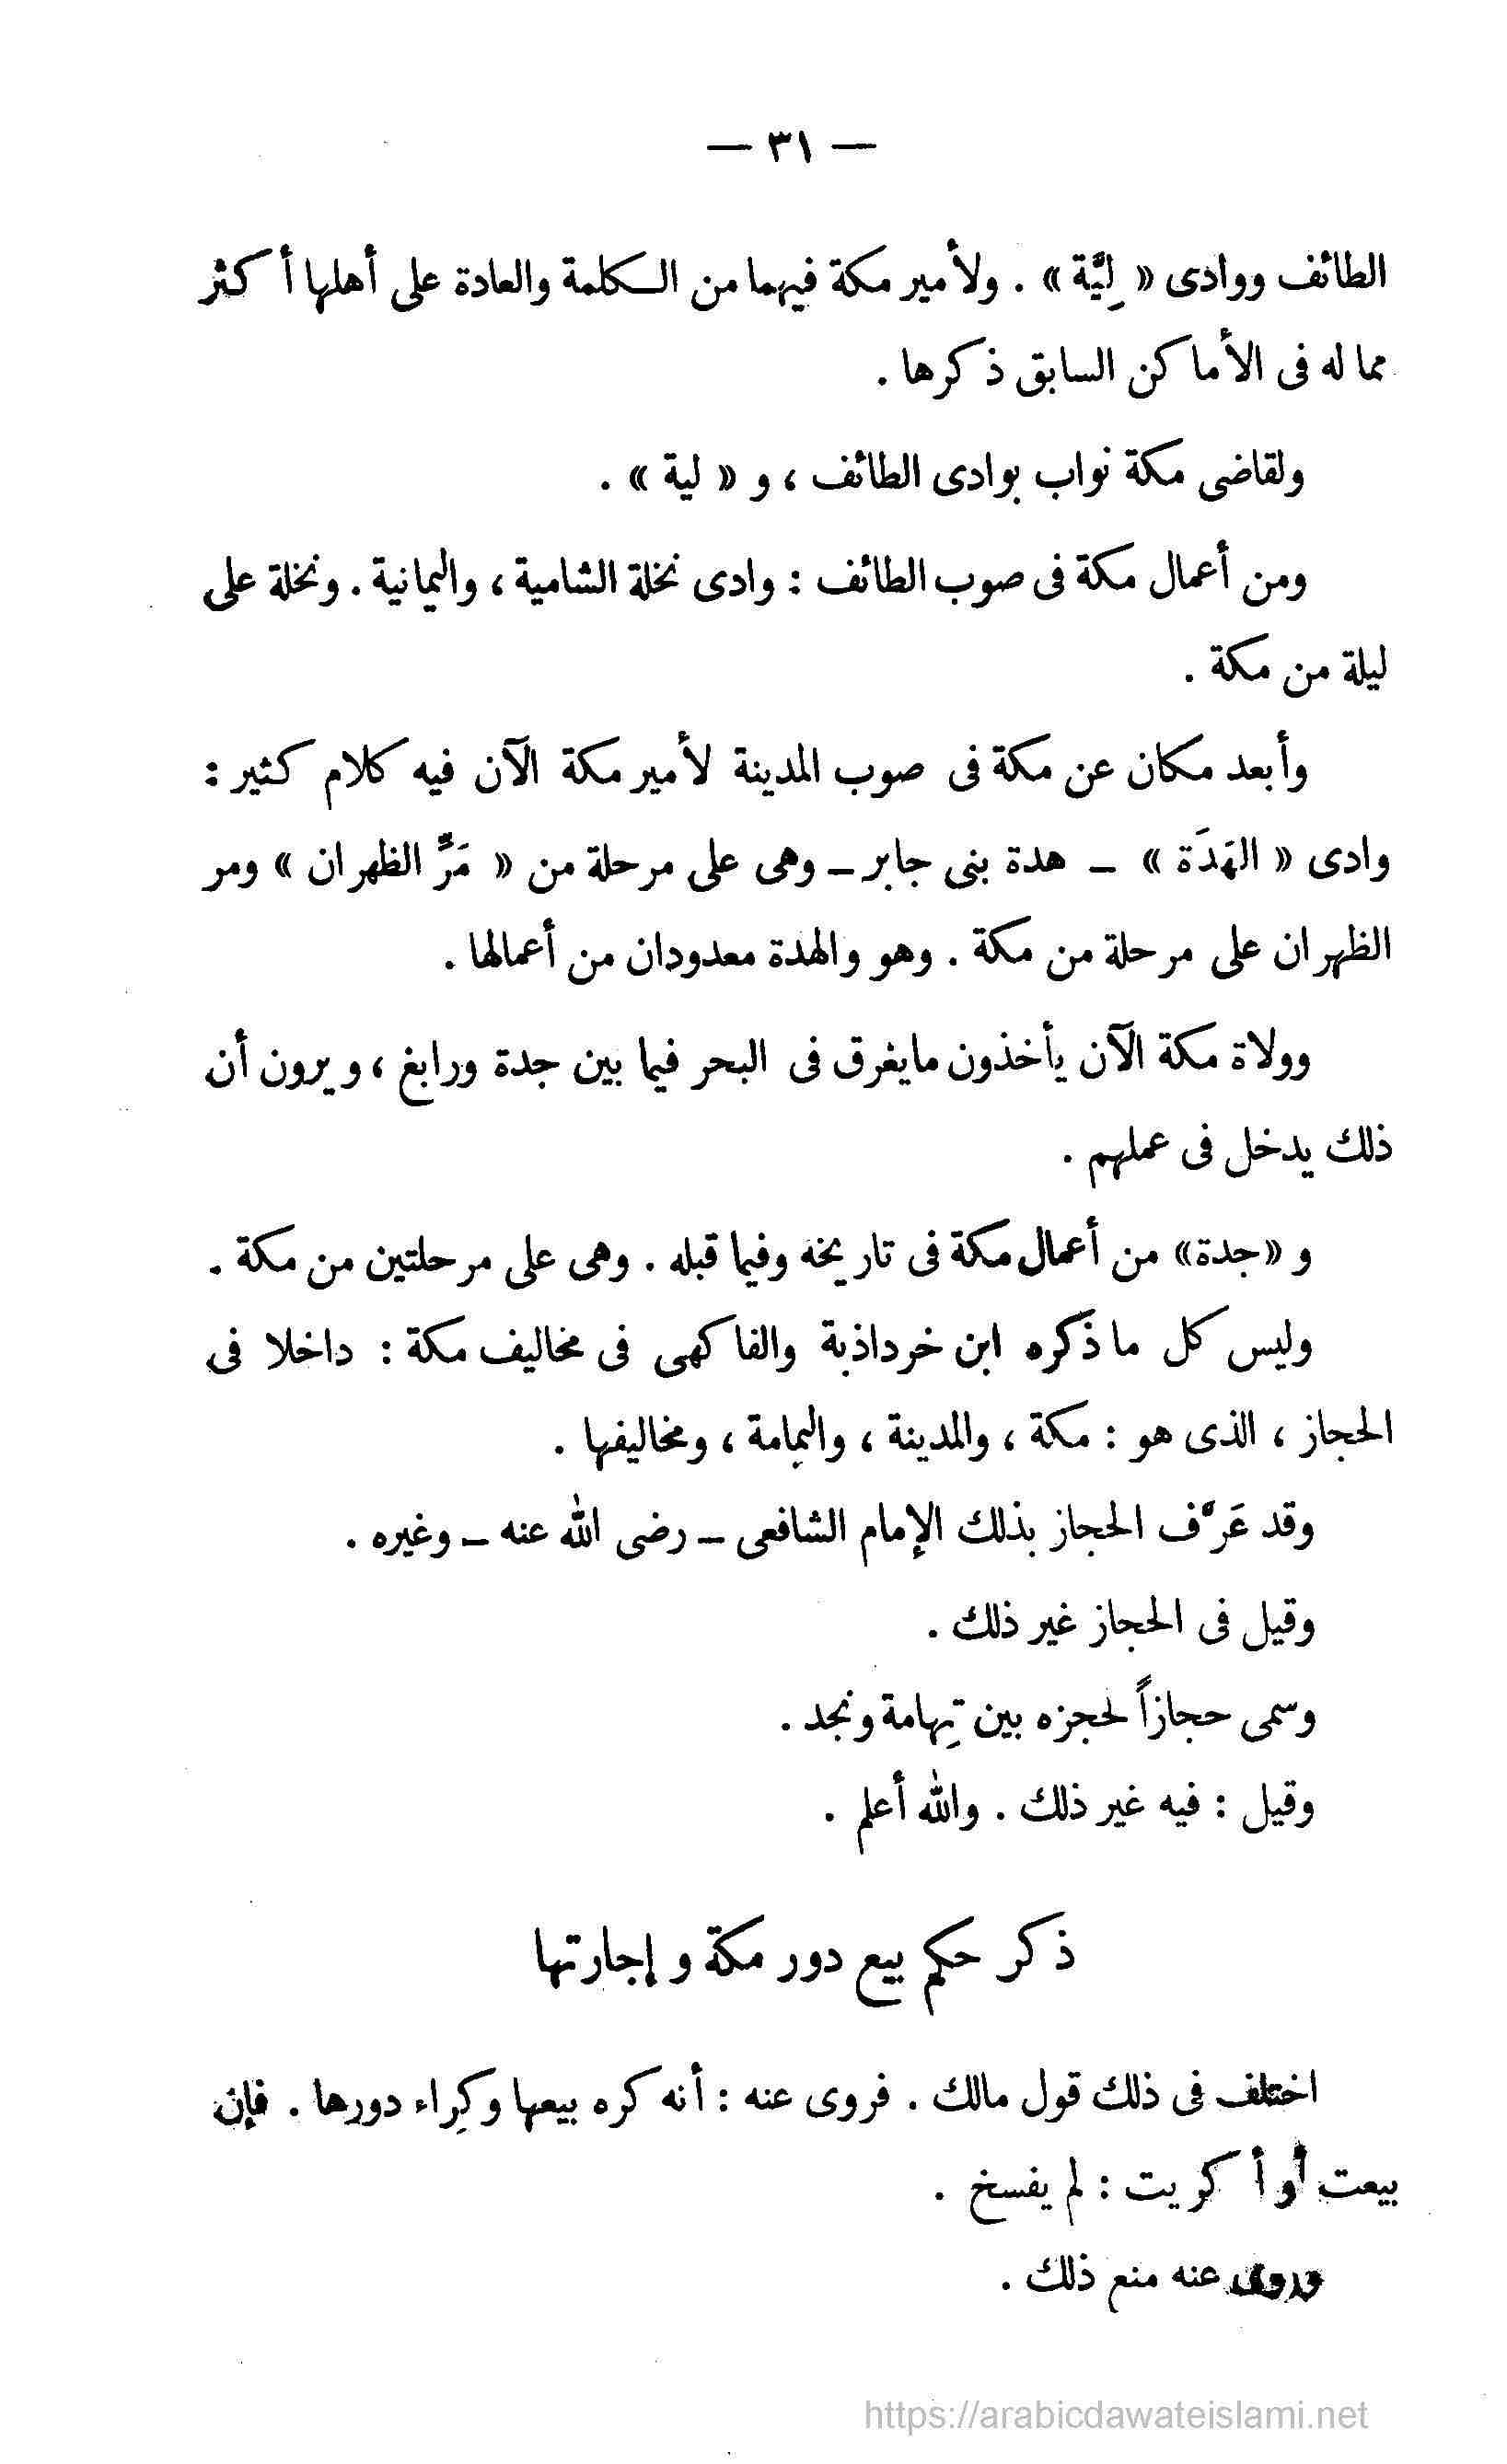 — ٣١ —
الطائف ووادى « لِيَّة » . ولأمير مكة فيهما من الكلمة والعادة على أهلها أكثر
مما له فى الأماكن السابق ذكرها .
ولقاضى مكة نواب بوادى الطائف ، و « لية » .
ومن أعمال مكة فى صوب الطائف : وادى نخلة الشامية ، واليمانية . ونخلة على
ليلة من مكة .
وأبعد مكان عن مكة فى صوب المدينة لأمير مكة الآن فيه كلام كثير :
وادى « الهَدَة » – هدة بنى جابر – وهى على مرحلة من « مَرِّ الظهران » ومر
الظهران على مرحلة من مكة . وهو والهدة معدودان من أعمالها .
وولاة مكة الآن يأخذون مايغرق فى البحر فيما بين جدة ورابغ ، ويرون أن
ذلك يدخل فى عملهم .
و «جدة» من أعمال مكة فى تاريخه وفيما قبله . وهى على مرحلتين من مكة .
وليس كل ماذكره ابن خرداذبة والفاكهى فى مخاليف مكة : داخلا فى
الحجاز ، الذى هو : مكة ، والمدينة ، واليمامة ، ومخاليفها .
وقد عَرَّف الحجاز بذلك الإمام الشافعى – رضى الله عنه – وغيره .
وقيل فى الحجاز غير ذلك .
وسمى حجازاً لحجزه بين تِهامة ونجد .
وقيل : فيه غير ذلك . والله أعلم .
ذكر حكم بيع دور مكة وإجارتها
اختلف فى ذلك قول مالك . فروى عنه : أنه كره بيعها وكِراء دورها . فإن
بيعت أو أكريت : لم يفسخ .
وروى عنه منع ذلك .
https://arabicdawateislami.net